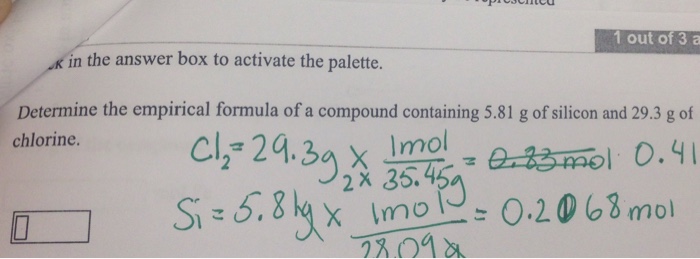 1 out of 3 a
k in the answer box to activate the palette.
Determine the empirical formula of a compound containing 5.81 g of silicon and 29.3 g of
chlorine.
Cl₂ = 29.3g × 1mol / 2× 35.45g = 0.83mol 0.41
Si = 5.81g × 1mol / 28.09g = 0.2068 mol